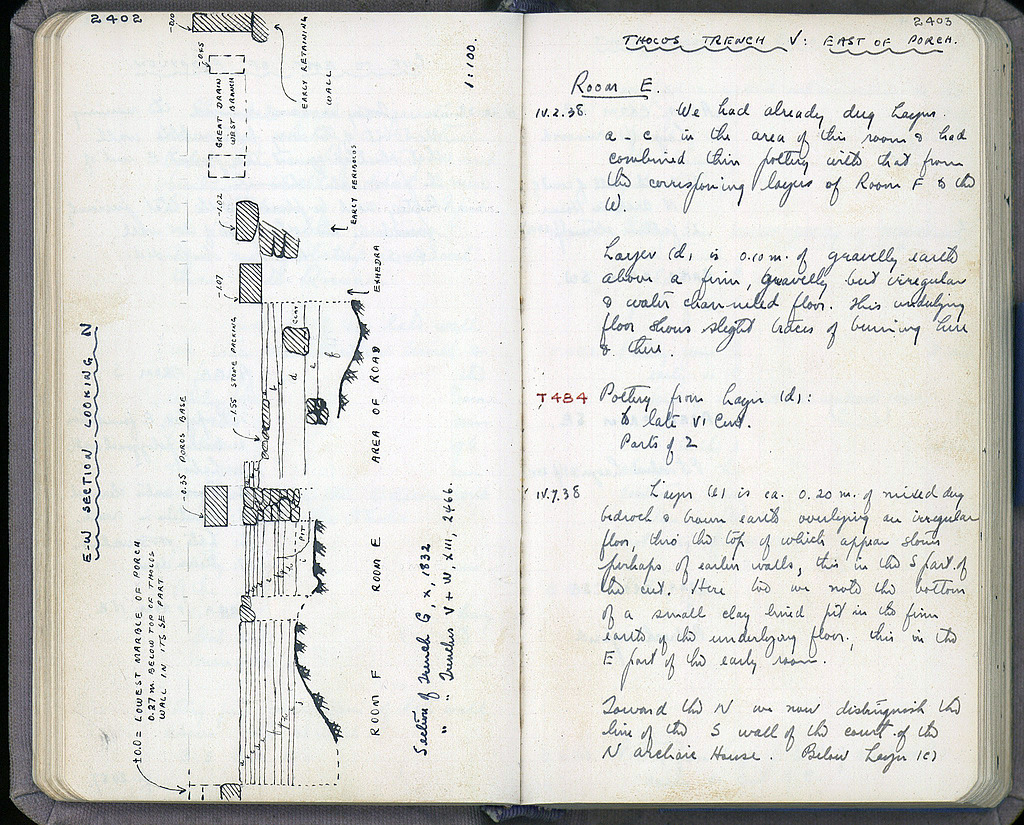 2402
E-W SECTION LOOKING N
±0.0 = LOWEST MARBLE OF PORCH
0.27 M. BELOW TOP OF THOLOS
WALL IN ITS SE PART
-0.55 POROS BASE
-1.55 STONE PACKING
-1.07
-1.02
-0.65
-0.10
GREAT DRAIN
WEST BRANCH
EARLY RETAINING
WALL
EARLY PERIBOLOS
EXHEDRA
CLAY
PIT
d
e
f
ROOM F
ROOM E
AREA OF ROAD
1:100.
Section of Trench G, X, 1832
" " Trenches V + W, XIII, 2466.
2403
THOLOS TRENCH V: EAST OF PORCH.
Room E.
IV.2.38
We had already dug layers
a - c in the area of this room & had
combined their pottery with that from
the corresponing layers of Room F to the
W.
Layer (d) is 0.10 m. of gravelly earth
above a firm, gravelly but irregular
& water channeled floor. This underlying
floor shows slight traces of burning here
& there.
T484
Pottery from layer (d):
to late VI cent.
Parts of 2
IV.7.38
Layer (e) is ca. 0.20 m. of mixed dug
bedrock & brown earth overlying an irregular
floor, thro' the top of which appear stones
perhaps of earlier walls; this in the S part of
the cut. Here too we note the bottom
of a small clay lined pit in the firm
earth of the underlying floor; this in the
E part of the early room.
Toward the N we now distinguish the
line of the S wall of the court of the
N archaic House. Below layer (c)